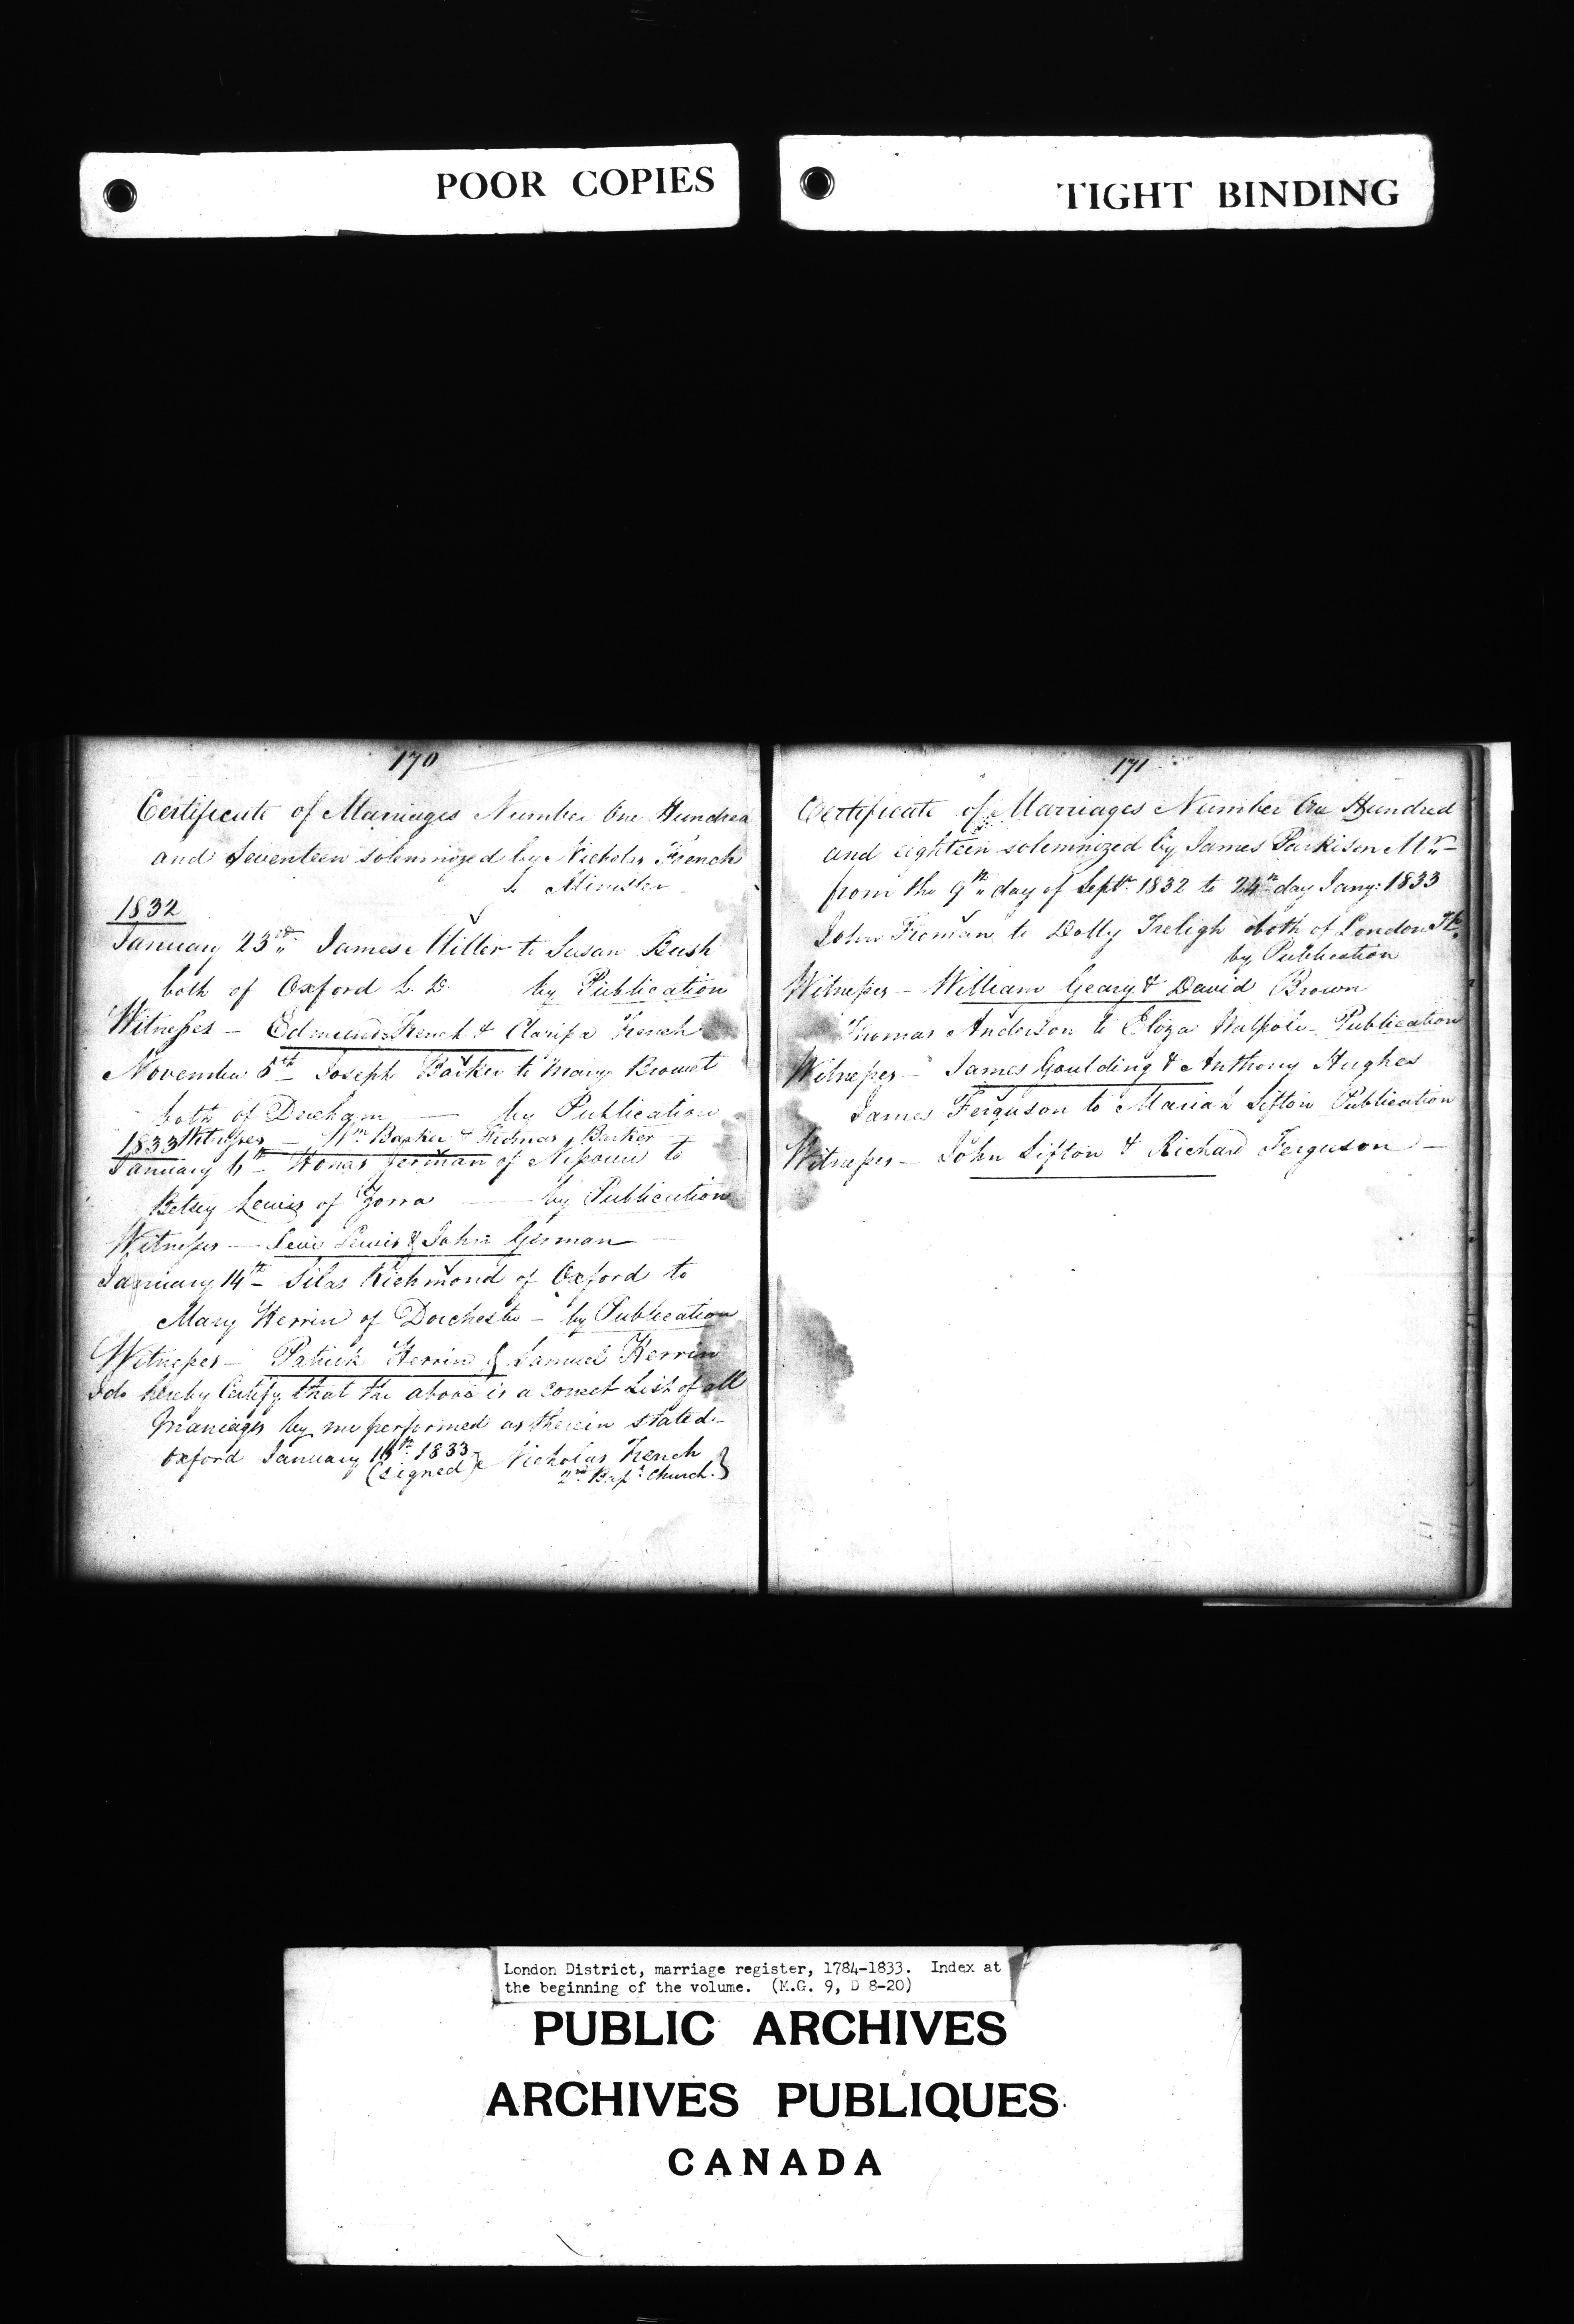 POOR COPIES
TIGHT BINDING
170
Certificate of Marriages Number One Hundred
and Seventeen solemnized by Nicholas French
Minister
1832
January 23rd James Miller to Susan Bush
both of Oxford L. D. by Publication
Witnesses – Edmund French & Clarissa French
November 5th Joseph Barker to Mary
both of Dereham — by Publication
1833 Witnesses – Wm Barker & Barker
January 6th German of Nissouri to
Betsey Lewis of Zorra — by Publication
Witnesses — Levi Lewis & John German —
January 14th – Silas Richmond of Oxford to
Mary Herrin of Dorchester – by Publication
Witnesses – Patrick Herrin & Samuel Herrin
I do hereby Certify that the above is a correct List of all
Marriages by me performed as therein stated –
Oxford January 1833
(signed) Nicholas French
2nd Bapt Church
171
Certificate of Marriages Number One Hundred
and eighteen solemnized by James Parkison Mr –
from the 9th day of Septr 1832 to 24th day Jany: 1833
John Froman to Dolly Freligh both of London Tp.
by Publication
Witnesses – William Geary & David Brown
Thomas Anderson to Eliza Walpole – Publication
Witnesses – James Goulding & Anthony Hughes
James Ferguson to Mariah Sifton Publication
Witnesses – John Sifton & Richard Ferguson –
London District, marriage register, 1784-1833. Index at
the beginning of the volume. (M.G. 9, D 8-20)
PUBLIC ARCHIVES
ARCHIVES PUBLIQUES
CANADA